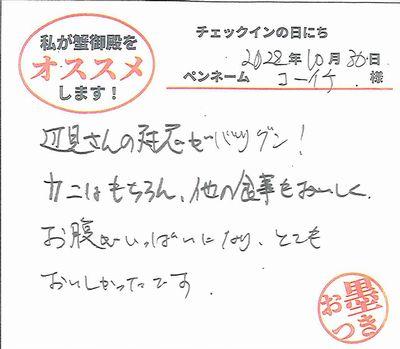 私が蟹御殿を
オススメ
します！
チェックインの日にち
2022年10月30日
ペンネーム コーイチ 様
辺見さんの対応がバツグン！
カニはもちろん、他の食事もおいしく
お腹もいっぱいになり、とても
おいしかったです.
お墨つき